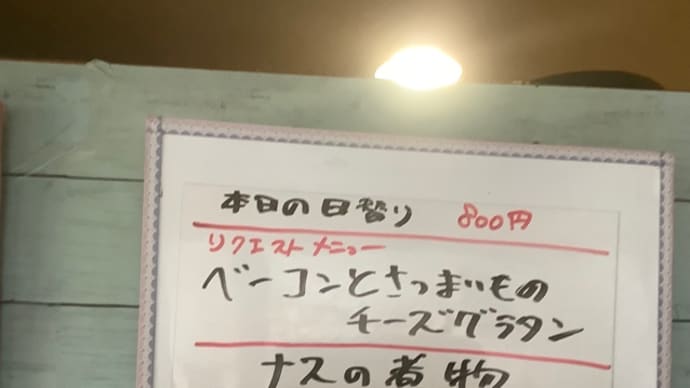 本日の日替り 800円
リクエストメニュー
ベーコンとさつまいもの
チーズグラタン
ナスの煮物